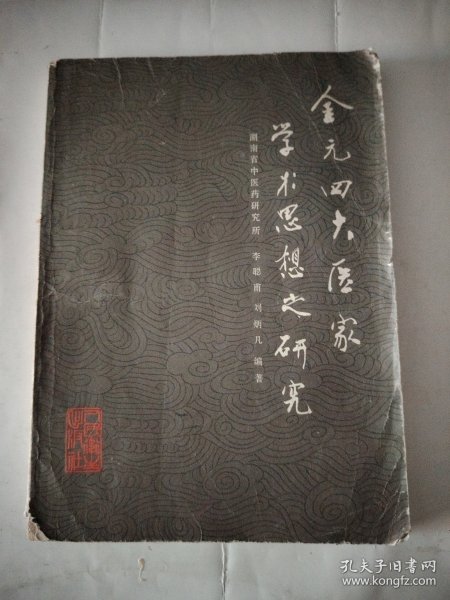 金元四大医家
学术思想之研究
湖南省中医药研究所 李聪甫 刘炳凡 编著
孔夫子旧书网
www.kongfz.com